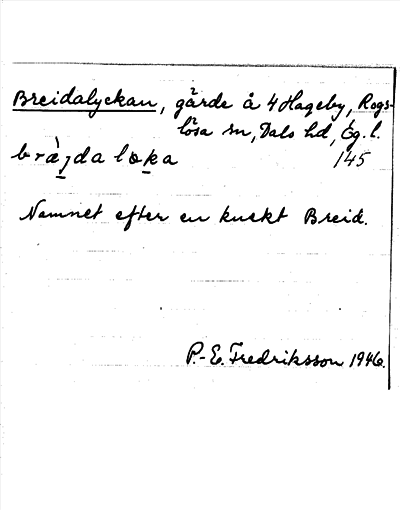 Breidalyckan, gärde å 4 Hageby, Rogs-
lösa sn, Dals hd, Ög. l.
bràjda lœka 145
Namnet efter en kuskt Breid.
P.-E. Fredriksson 1946.